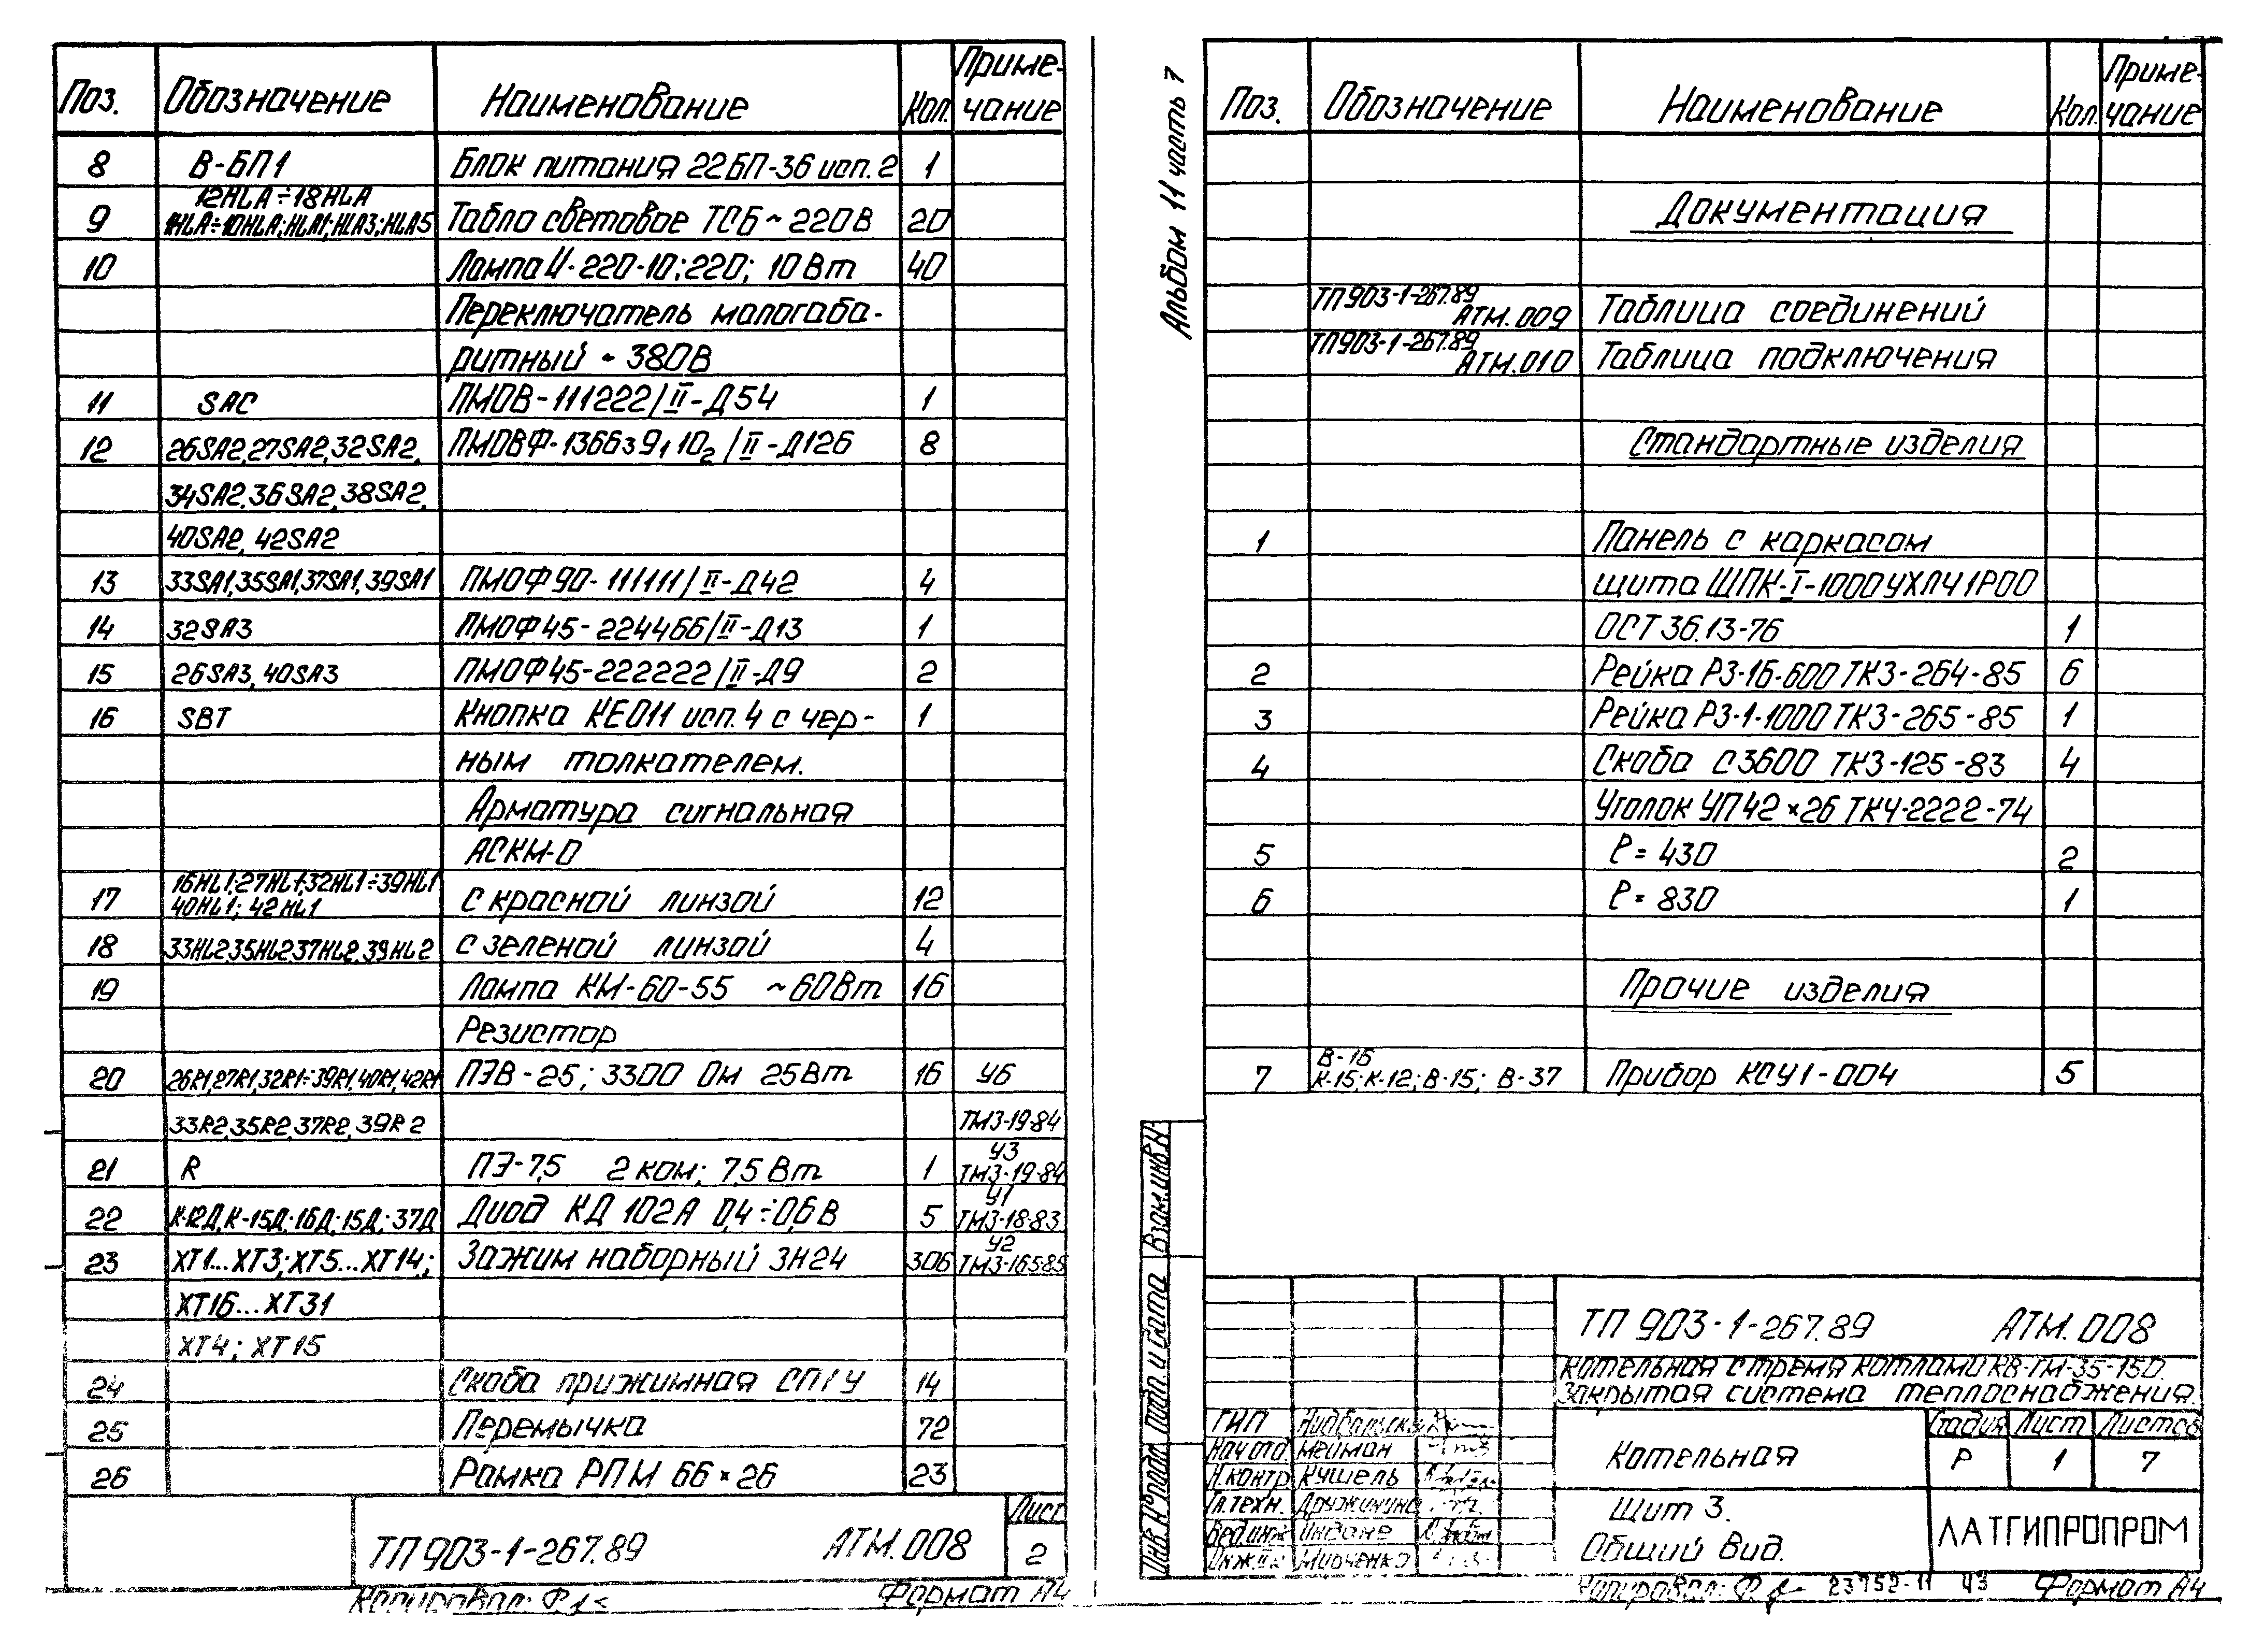 Поз. Обозначение Наименование Кол. Приме-
чание
8 В-БП1 Блок питания 22БП-36 исп.2 1
12HLA÷18HLA
9 1HLA÷10HLA; HLA1; HLA3; HLA5 Табло световое ТСБ ~ 220В 20
10 Лампа Ц-220-10; 220; 10Вт 40
Переключатель малогаба-
ритный ~ 380В
11 SAC ПМОВ-111222/II-Д54 1
12 26SA2, 27SA2, 32SA2, ПМОВФ-1366з9₁10₂/II-Д126 8
34SA2, 36SA2, 38SA2,
40SA2, 42SA2
13 33SA1, 35SA1, 37SA1, 39SA1 ПМОФ90-111111/II-Д42 4
14 32SA3 ПМОФ45-224466/II-Д13 1
15 26SA3, 40SA3 ПМОФ45-222222/II-Д9 2
16 SBT Кнопка КЕ011 исп. 4 с чер- 1
ным толкателем.
Арматура сигнальная
АСКМ-О
16HL1; 27HL1; 32HL1÷39HL1
17 40HL1; 42HL1 с красной линзой 12
18 33HL2, 35HL2, 37HL2, 39HL2 с зеленой линзой 4
19 Лампа КМ-60-55 ~60Вт 16
Резистор
20 26R1, 27R1, 32R1÷39R1, 40R1, 42R1 ПЭВ-25; 3300 Ом 25Вт 16 У6
33R2, 35R2, 37R2, 39R2 ТМ3-19-84
У3
21 R ПЭ-7,5 2 ком; 7,5 Вт 1 ТМ3-19-84
У1
22 К-12Д, К-15Д; 16Д; 15Д; 37Д Диод КД 102А 0,4÷0,6В 5 ТМ3-18-83
У2
23 ХТ1...ХТ3; ХТ5...ХТ14; Зажим наборный ЗН24 306 ТМ3-165-85
ХТ16...ХТ31
ХТ4; ХТ15
24 Скоба прижимная СП1У 14
25 Перемычка 72
26 Рамка РПМ 66×26 23
ТП 903-1-267.89 АТМ.008
Лист
2
Копировал: Формат А4
Альбом 11 часть 7
Поз. Обозначение Наименование Кол. Приме-
чание
Документация
ТП 903-1-267.89
АТМ.009 Таблица соединений
ТП903-1-267.89
АТМ.010 Таблица подключения
Стандартные изделия
1 Панель с каркасом
щита ЩПК-I-1000УХЛ4 1Р00
ОСТ 36.13-76 1
2 Рейка Р3-16-600 ТК3-264-85 6
3 Рейка Р3-1-1000 ТК3-265-85 1
4 Скоба С3600 ТК3-125-83 4
Уголок УП42×26 ТК4-2222-74
5 ℓ=430 2
6 ℓ=830 1
Прочие изделия
В-16
7 К-15; К-12; В-15; В-37 Прибор КСУ1-004 5
Инв.№подл. Подп. и дата Взам.инв.N
ТП 903-1-267.89 АТМ.008
Котельная с тремя котлами КВ-ТМ-35-150.
Закрытая система теплоснабжения.
ГИП
Нач.отд. Мейман
Н.контр. Кушель
Гл.техн. Дружинина
Вед.инж. Индане
Инж.
Котельная
Стадия Лист Листов
Р 1 7
Щит 3.
Общий вид.
ЛАТГИПРОПРОМ
Копировал: 23752-11 43 Формат А4